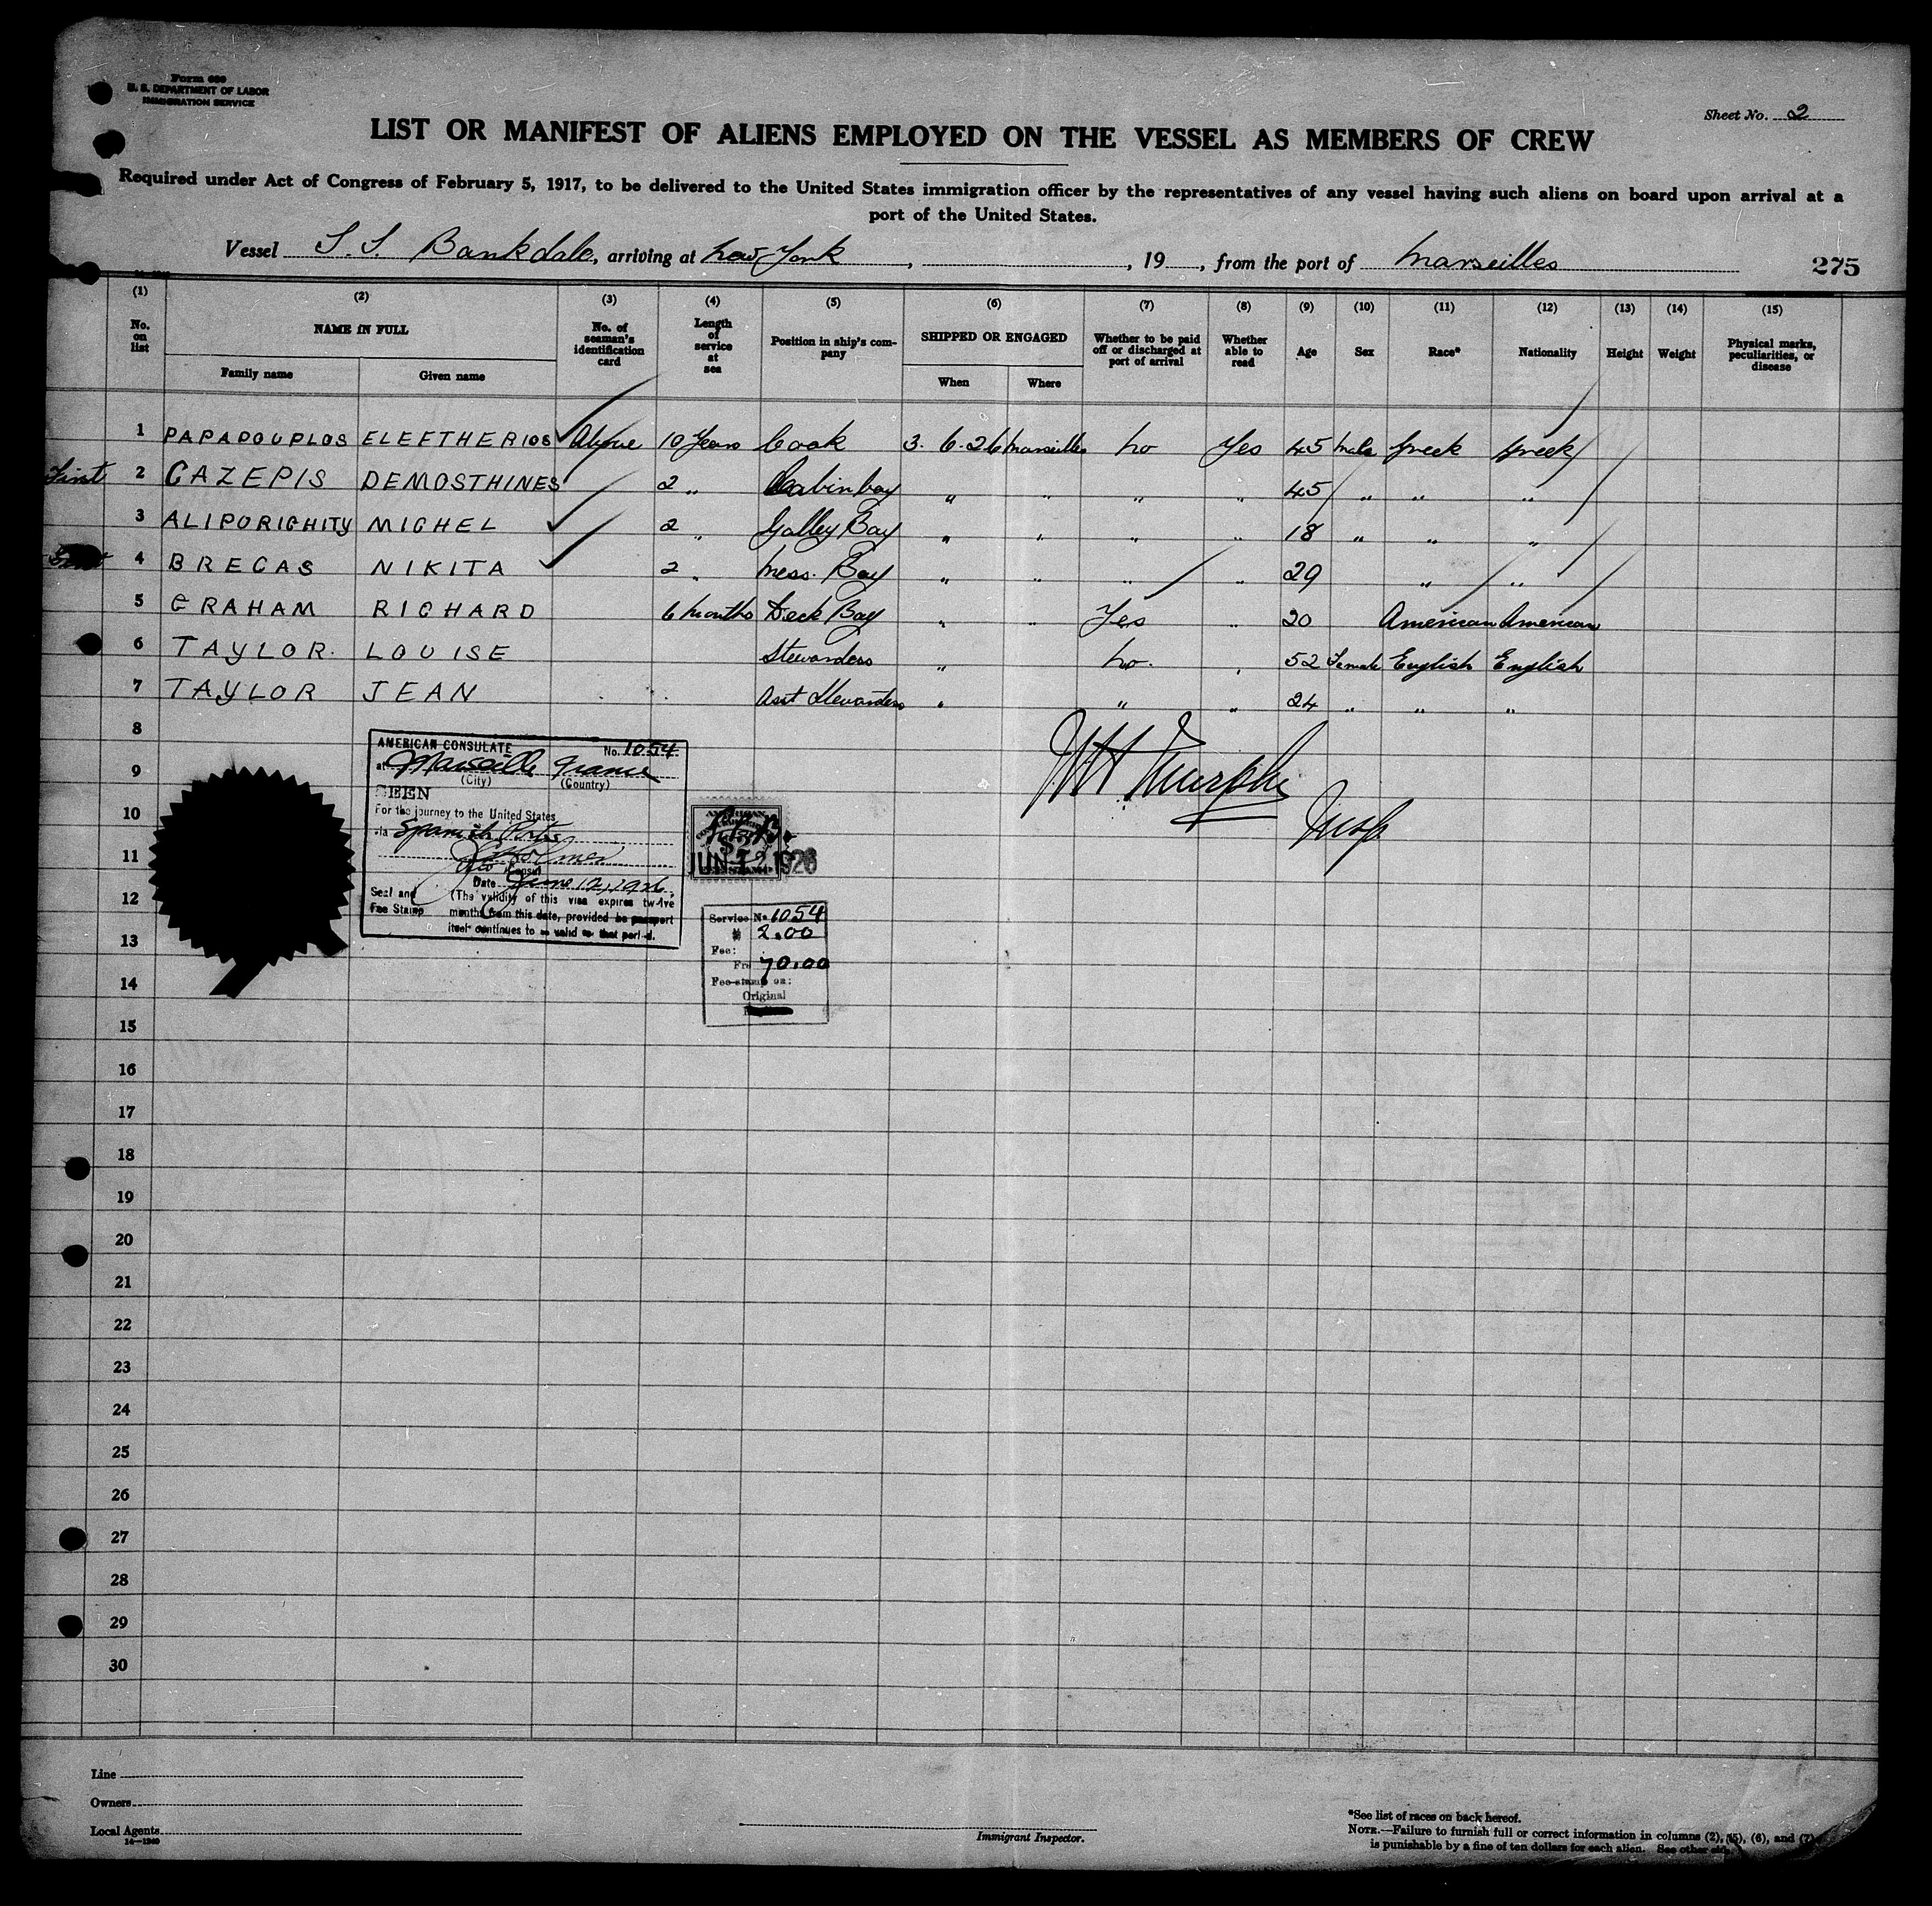 Form 689
U. S. DEPARTMENT OF LABOR
IMMIGRATION SERVICE
Sheet No. 2
LIST OR MANIFEST OF ALIENS EMPLOYED ON THE VESSEL AS MEMBERS OF CREW
Required under Act of Congress of February 5, 1917, to be delivered to the United States immigration officer by the representatives of any vessel having such aliens on board upon arrival at a
port of the United States.
Vessel S. S. Bankdale, arriving at New York, , 19 , from the port of Marseilles 275
(1) (2) (3) (4) (5) (6) (7) (8) (9) (10) (11) (12) (13) (14) (15)
No. on list NAME IN FULL No. of seaman's identification card Length of service at sea Position in ship's company SHIPPED OR ENGAGED Whether to be paid off or discharged at port of arrival Whether able to read Age Sex Race* Nationality Height Weight Physical marks, peculiarities, or disease
Family name Given name When Where
1 PAPADOUPLOS ELEFTHERIOS Above 10 Years Cook 3. 6. 26 Marseilles No Yes 45 Male Greek Greek
First 2 CAZEPIS DEMOSTHINES 2 " Cabin boy " " " " 45 " " "
3 ALIPORIGHITY MICHEL 2 " Galley Boy " " " " 18 " " "
4 BRECAS NIKITA 2 " Mess. Boy " " " " 29 " "
5 GRAHAM RICHARD 6 Months Deck Boy " " Yes " 20 American American
6 TAYLOR LOUISE Stewardess " No. " 52 Female English English
7 TAYLOR JEAN Asst Stewardess " " " 24 " " "
8
9
10
11
12
13
14
15
16
17
18
19
20
21
22
23
24
25
26
27
28
29
30
AMERICAN CONSULATE No. 1054
at Marseille France
(City) (Country)
SEEN
For the journey to the United States
via Spanish Ports
Consul
Date June 12, 1926
Seal and Fee Stamp
(The validity of this visa expires twelve
months from this date, provided be passport
itself continues to be valid to that period.
JUN 12 1926
Service No. 1054
$ 2.00
Fee:
Frs 70.00
Fee-stamp on:
Original
Murphy
Insp
Line
Owners
Local Agents
14—1240
Immigrant Inspector.
*See list of races on back hereof.
NOTE.—Failure to furnish full or correct information in columns (2), (5), (6), and (7)
is punishable by a fine of ten dollars for each alien. See other side.